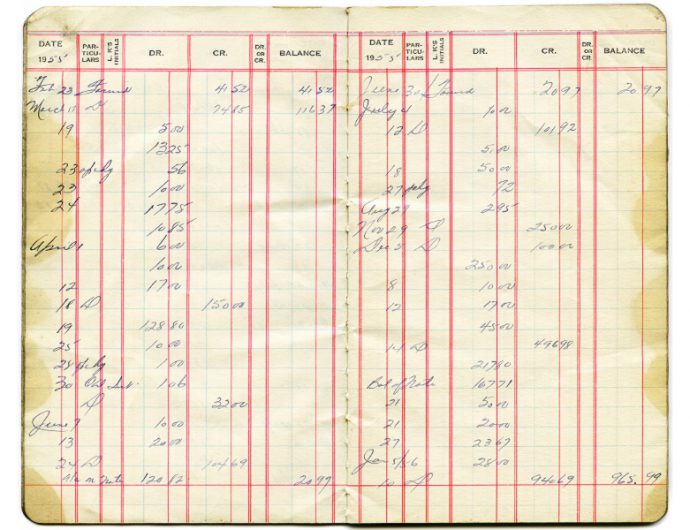 DATE PARTICULARS L. K'S INITIALS DR. CR. DR. OR CR. BALANCE
1955
Feb 23 Forward 4152 4152
March 11 D 7485 11637
19 500
1325
23 chg 56
23 1000
24 1775
1085
April 1 600
1000
12 1700
18 D 15000
19 12880
25 1000
28 chg 100
30 Int. 106
D 3200
June 7 1000
13 2000
24 D 10469
a/c on note 12082 2097
DATE PARTICULARS L. K'S INITIALS DR. CR. DR. OR CR. BALANCE
1955
June 30 Forward 2097 2097
July 4 1000
12 D 10192
500
18 5000
27 72
Aug 29 295
Nov 29 D 25000
Dec 5 D 10000
25000
8 1000
12 1700
4500
14 D 49698
21780
Bal of Note 16771
21 5000
21 2000
27 2367
Jan 5/56 2800
10 D 94069 965.99